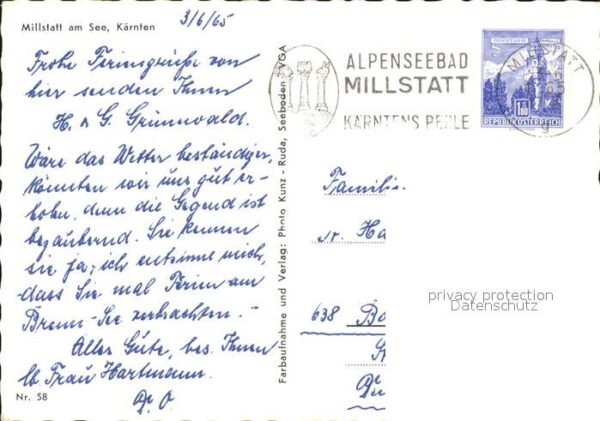 Millstatt am See, Kärnten
3/6/65
Frohe Feriengrüße von
hier senden Ihnen
H. & G. Grünwald.
Wäre das Wetter beständiger,
könnten wir uns gut er-
holen, denn die Gegend ist
bezaubernd. Sie kennen
sie ja; ich entsinne mich,
dass Sie mal Ferien am
See verbrachten.-
Alles Gute, bes. Ihnen
lb. Frau Hartmann.
Nr. 58
Farbaufnahme und Verlag: Photo Kunz - Ruda, Seeboden VGA
ALPENSEEBAD
MILLSTATT
KÄRNTENS PERLE
MILLSTATT
1.80
REPUBLIK ÖSTERREICH
Familie
Ha
638 Bo
privacy protection
Datenschutz